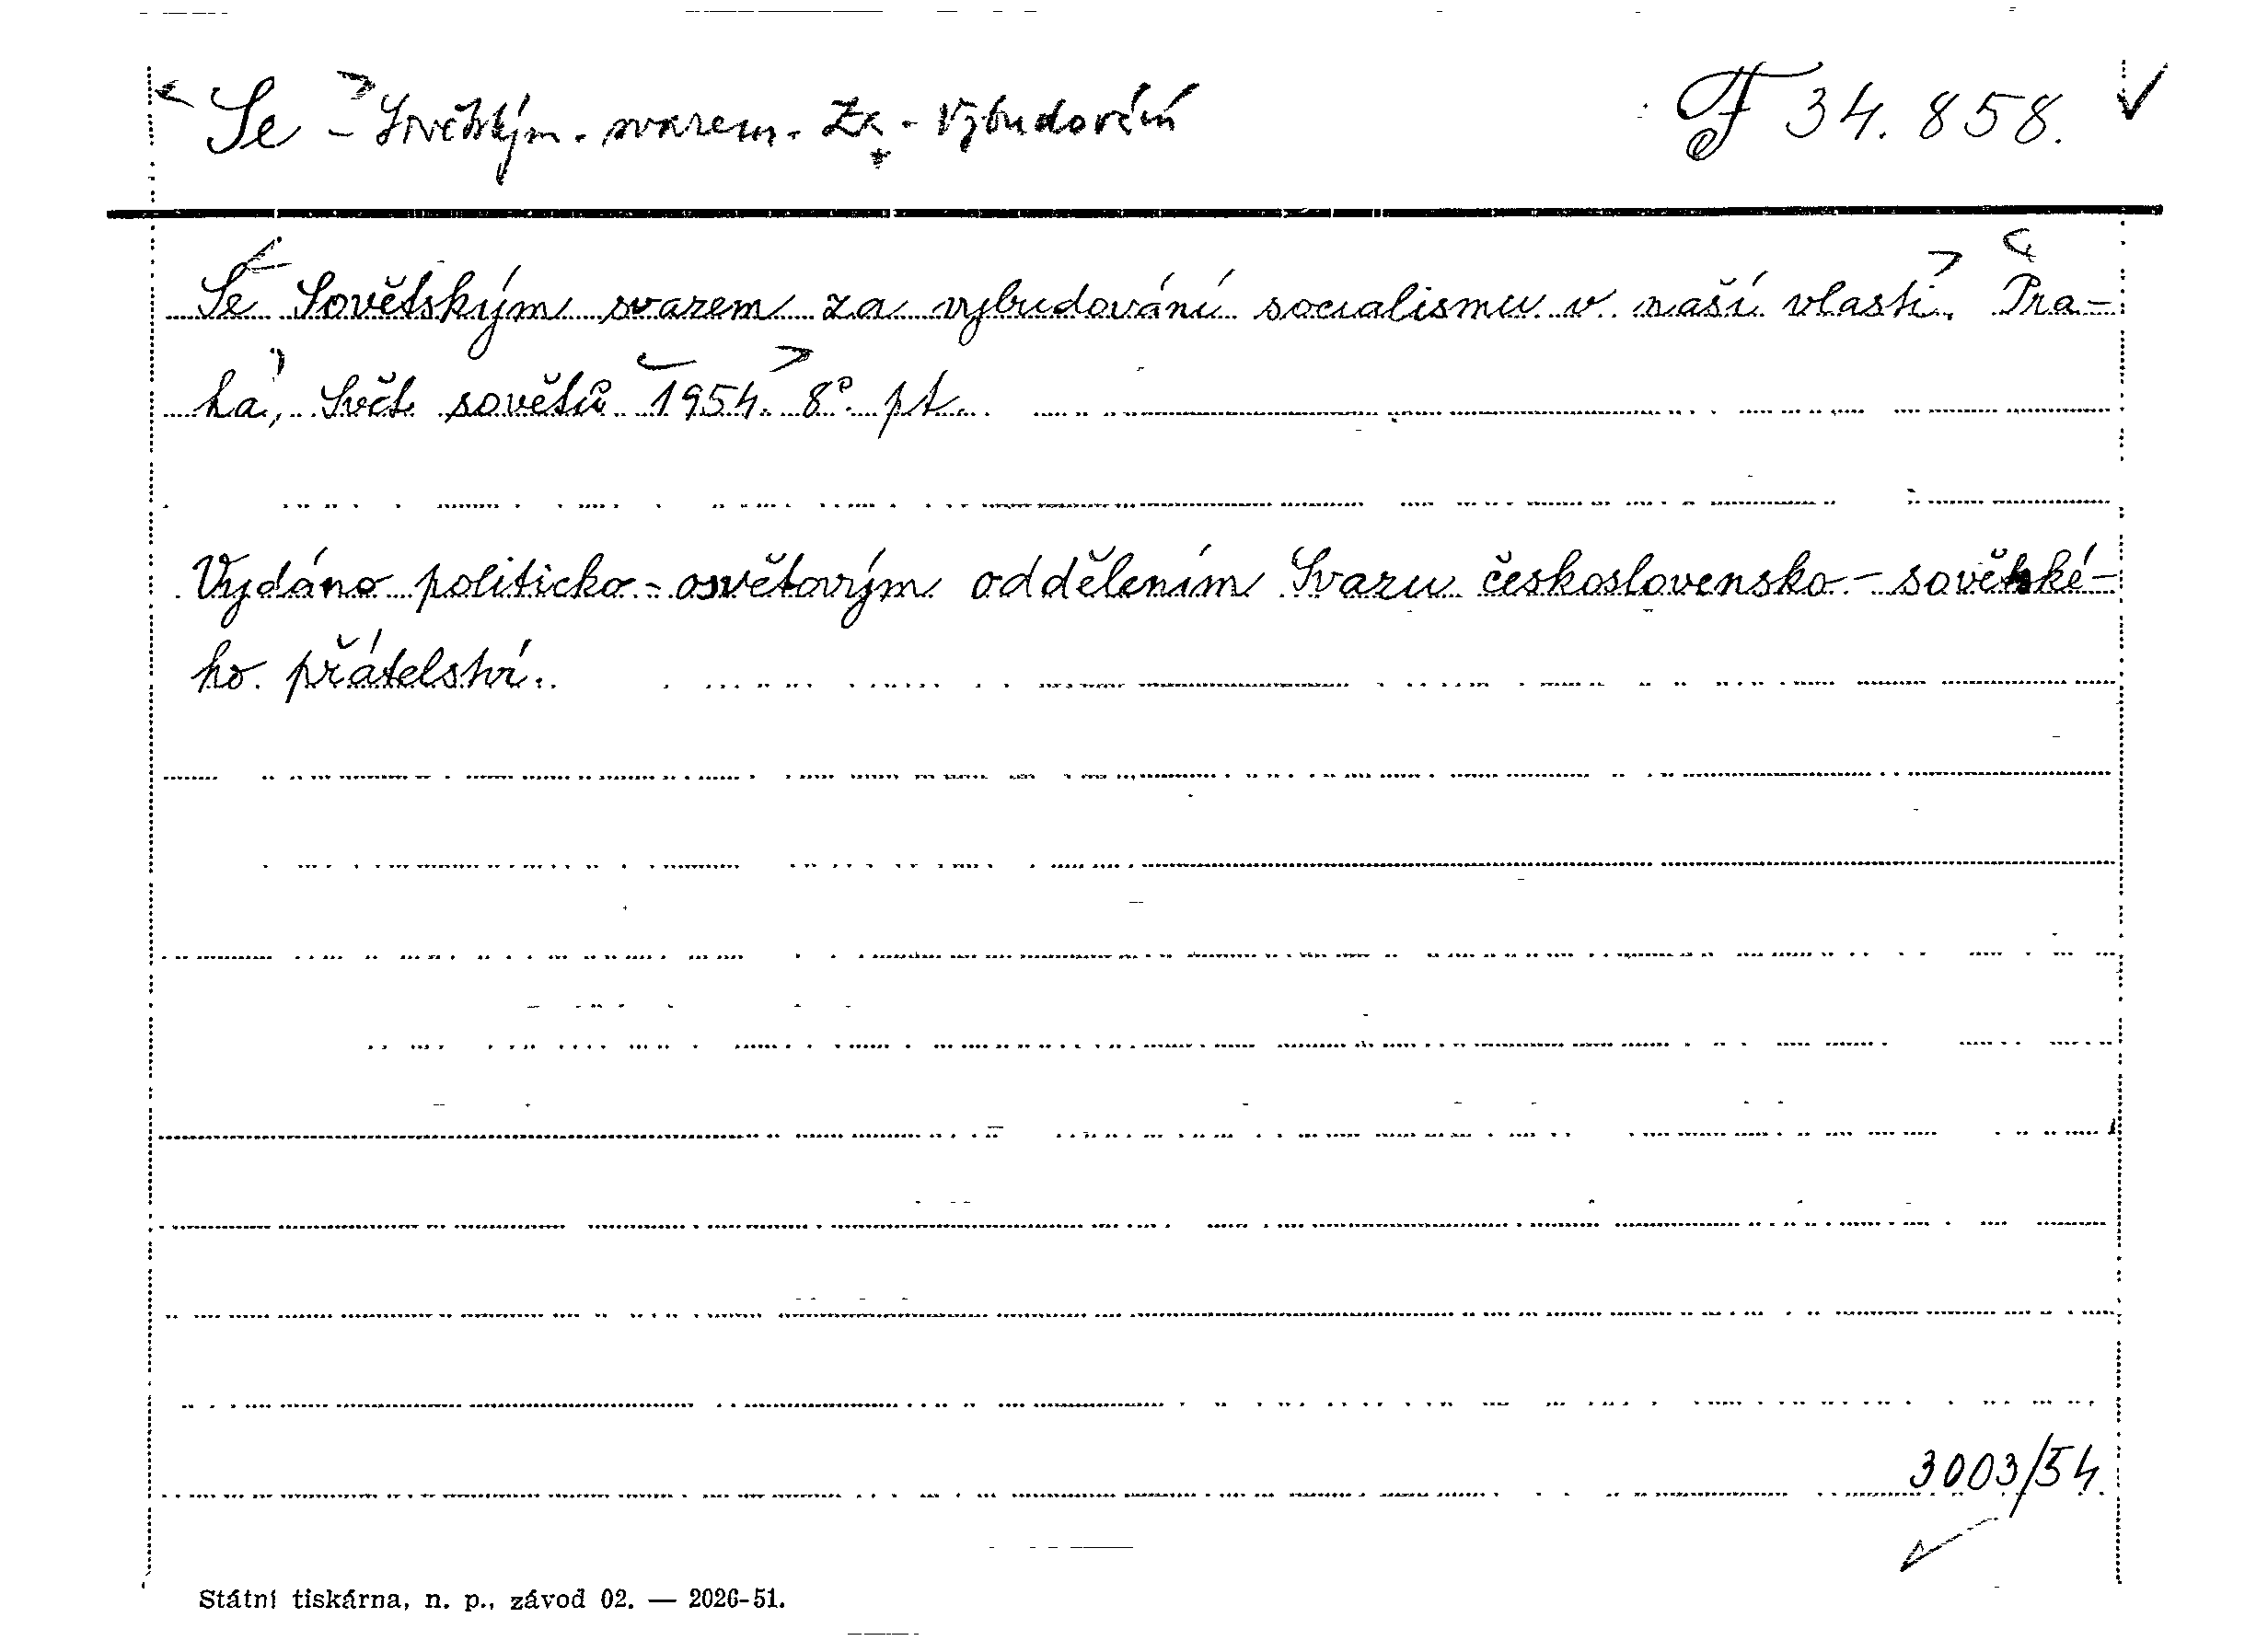 Se - Sovětským - svazem - za - vybudování F 34.858.
Se Sovětským svazem za vybudování socialismu v naší vlasti. Pra-
ha, Svět sovětů 1954. 8°. pt.
Vydáno politicko-osvětovým oddělením Svazu československo-sovětské-
ho přátelství.
3003/54
Státní tiskárna, n. p., závod 02. — 2026-51.